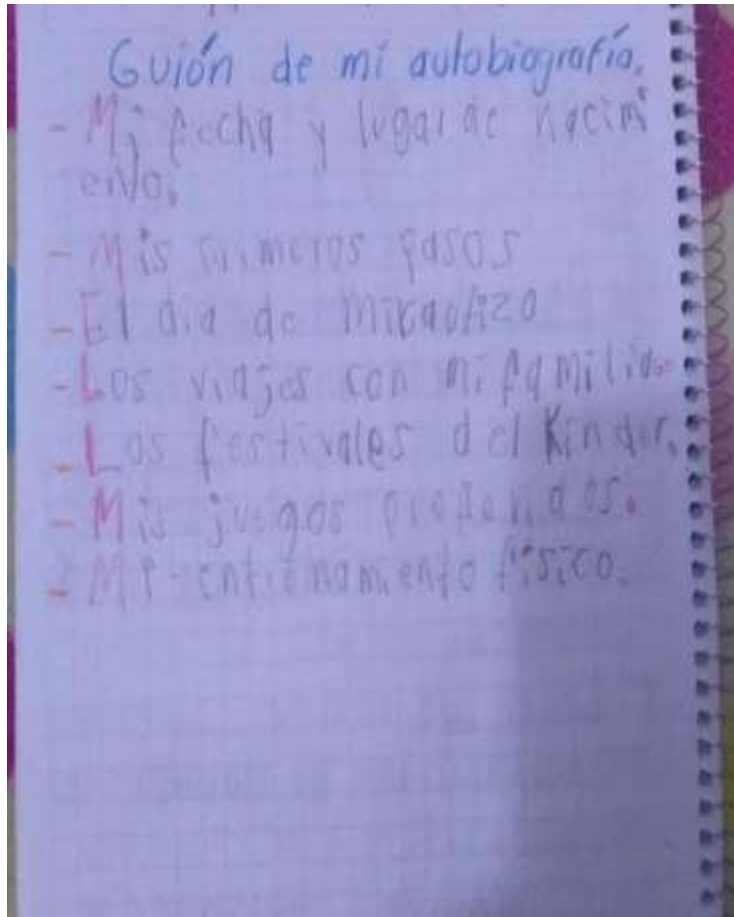 Guión de mi autobiografía.
- Mi fecha y lugar de nacimi
ento.
- Mis primeros pasos
- El dia de mi bautizo
- Los viajes con mi familia.
- Los festivales del Kinder.
- Mis juegos preferidos.
- Mi entrenamiento físico.